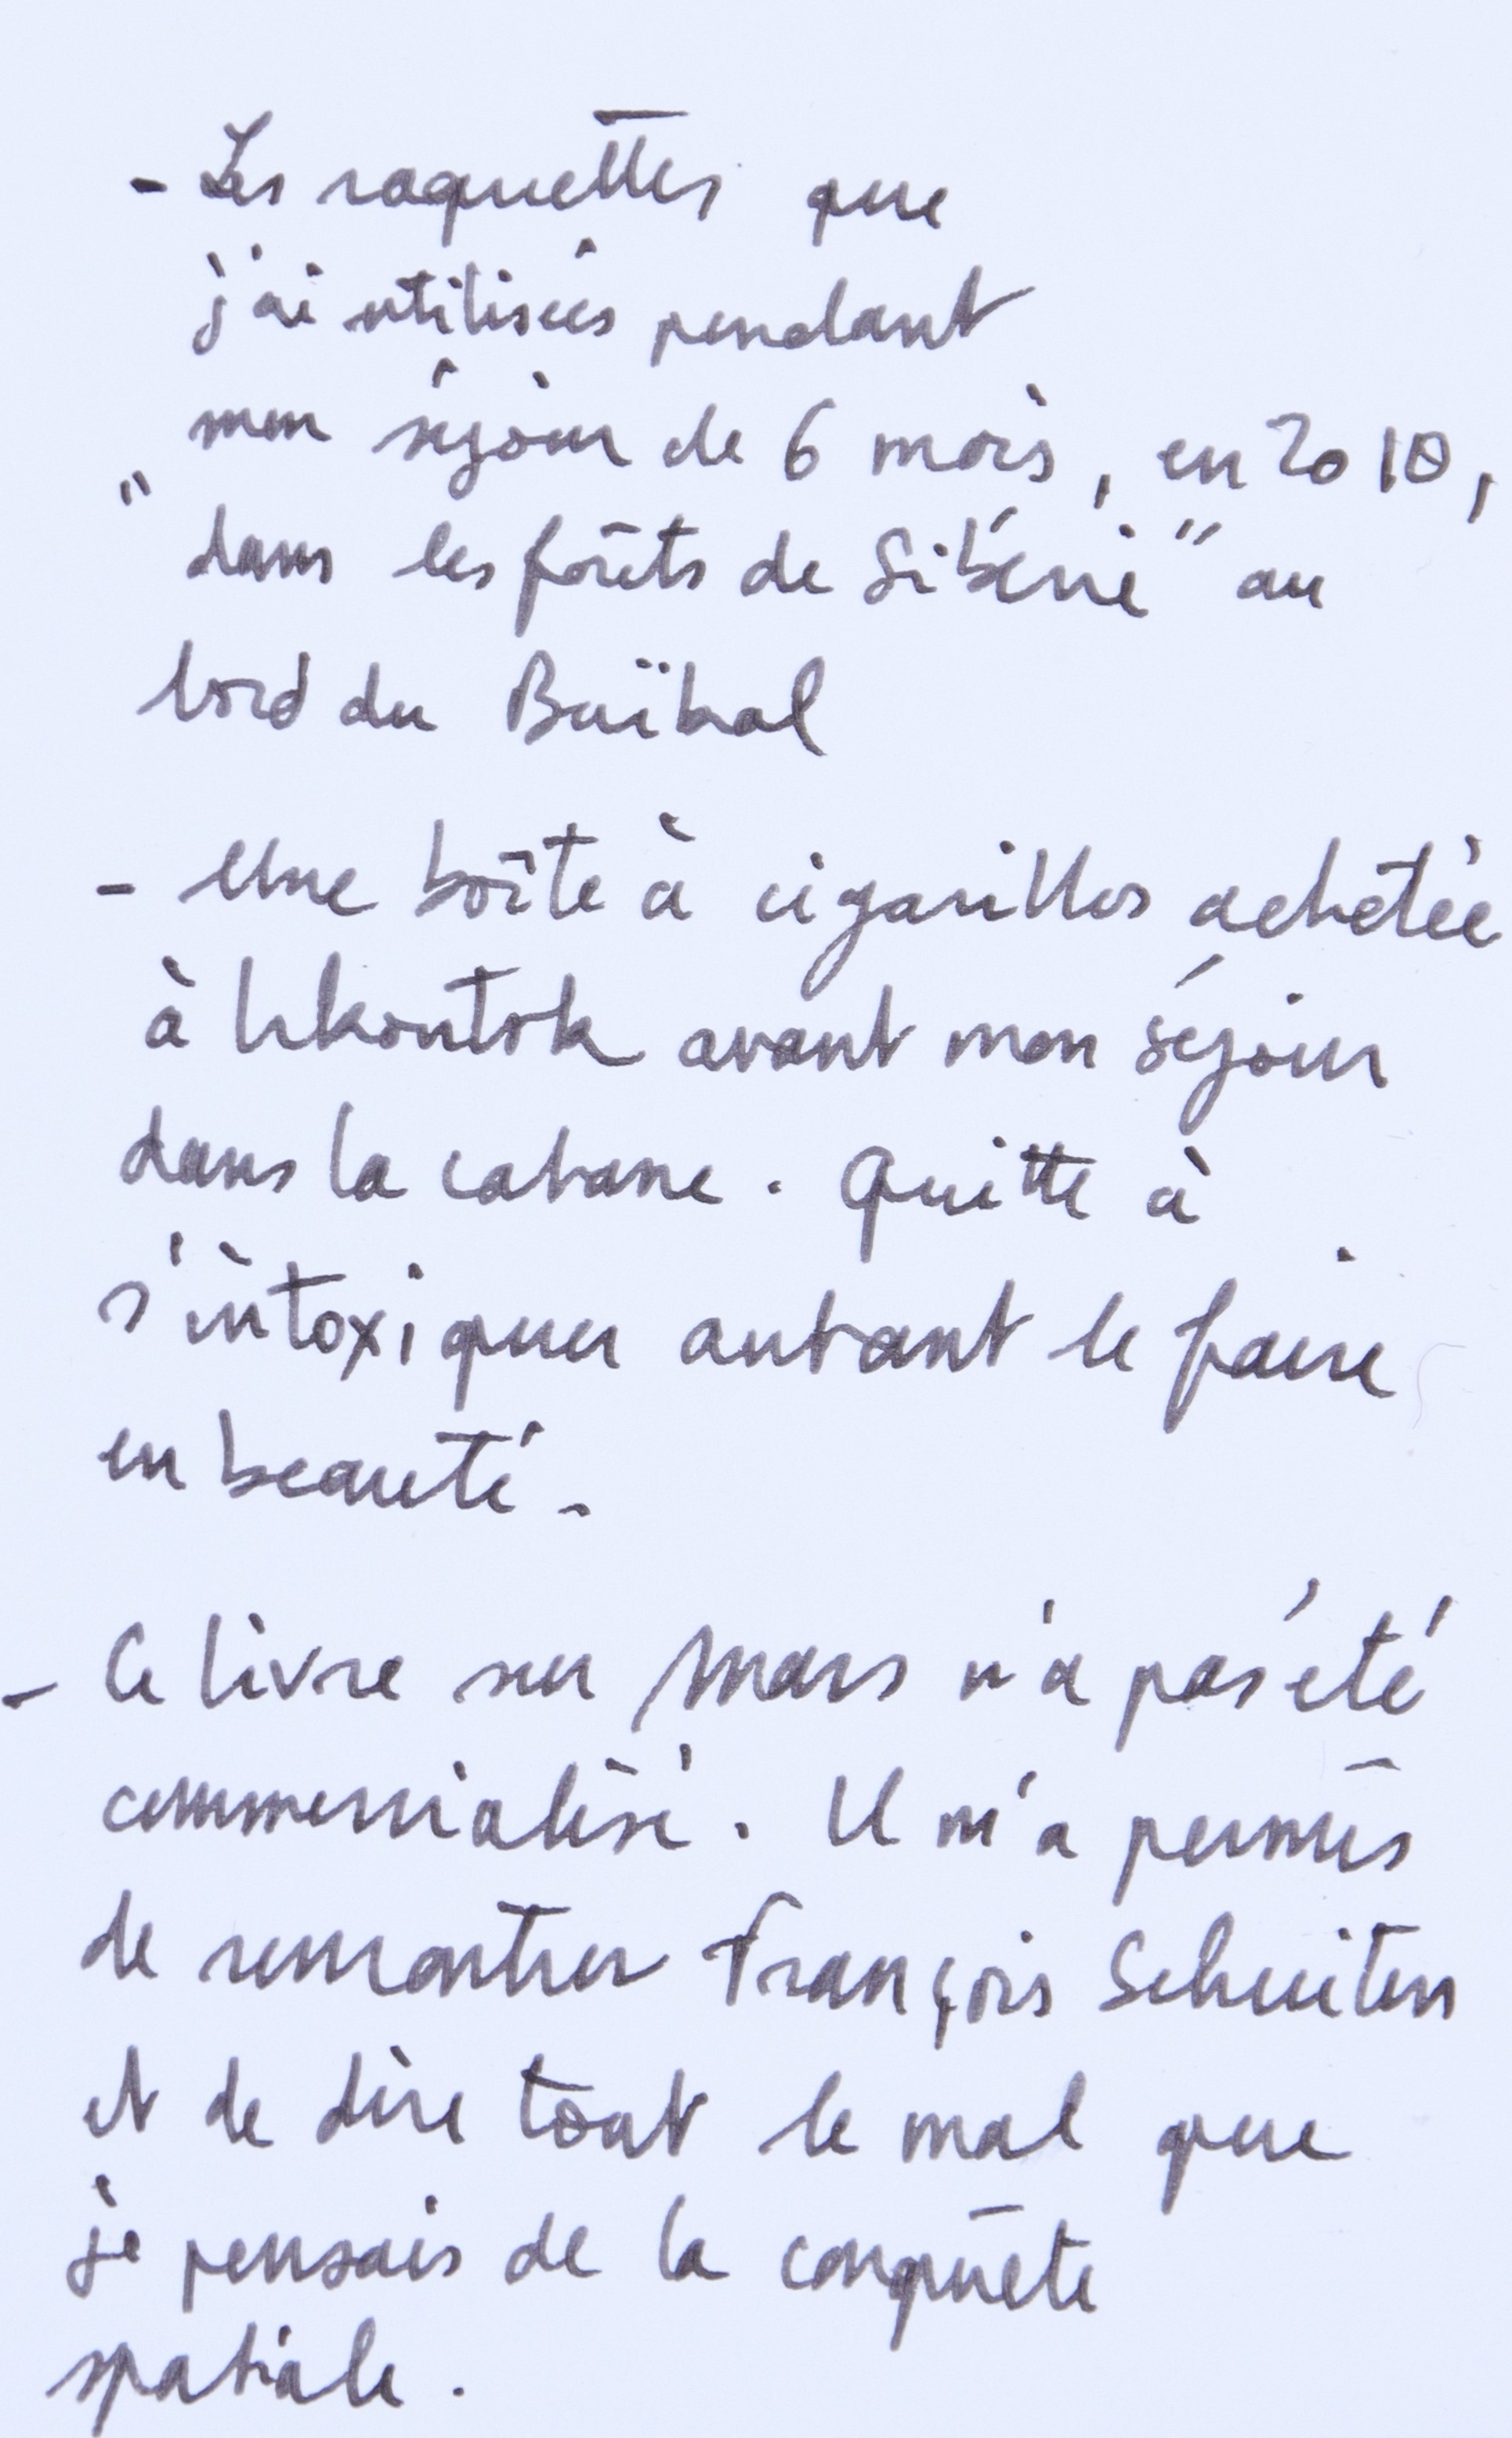 - Les raquettes que
j'ai utilisées pendant
mon séjour de 6 mois, en 2010,
"dans les forêts de Sibérie" au
bord du Baïkal
- Une boîte à cigarillos achetée
à Irkoutsk avant mon séjour
dans la cabane. Quitte à
s'intoxiquer autant le faire
en beauté.
- Ce livre sur Mars n'a pas été
commercialisé. Il m'a permis
de rencontrer François Schuiten
et de dire tout le mal que
je pensais de la conquête
spatiale.